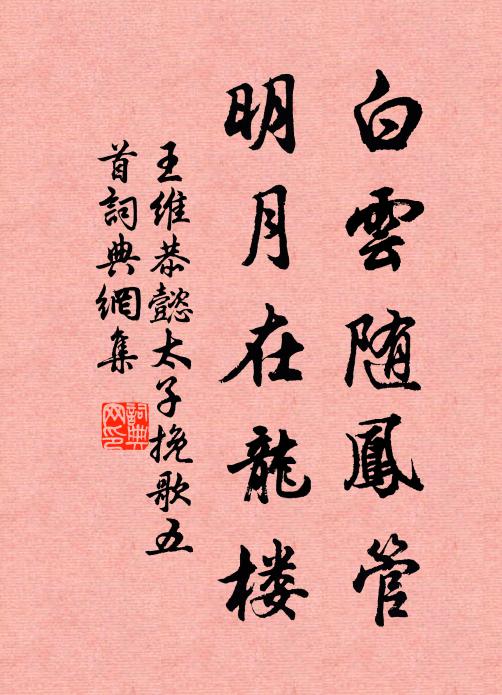 白雲随鳳管
明月在龍楼
王維恭懿太子挽歌五
首詞典網集
詞典网印